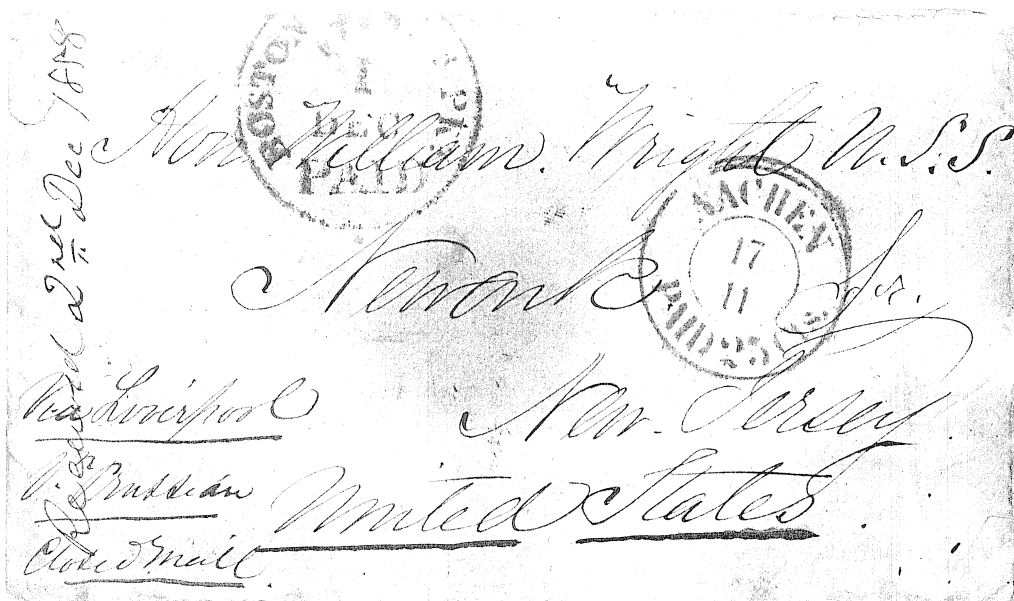 Received 2nd Dec
BOSTON Br. Pkt.
DEC
PAID
Hon William Wright U.S.S.
AACHEN
17
11
PAID 25 Cts
Newark
New Jersey
United States
Via Liverpool
Prussian
Closed Mail